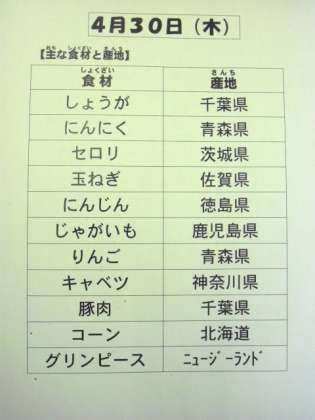 4月30日（木）
【主な食材と産地】
食材 産地
しょうが 千葉県
にんにく 青森県
セロリ 茨城県
玉ねぎ 佐賀県
にんじん 徳島県
じゃがいも 鹿児島県
りんご 青森県
キャベツ 神奈川県
豚肉 千葉県
コーン 北海道
グリンピース ﾆｭｰｼﾞｰﾗﾝﾄﾞ